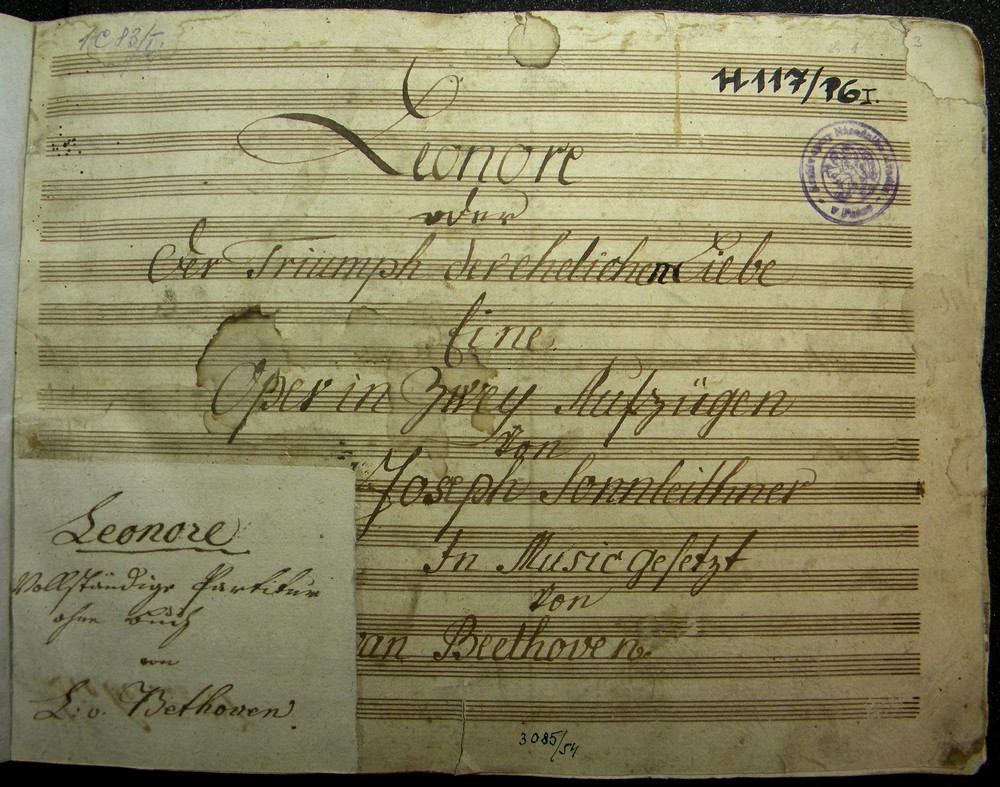 1C83/I.
H 117/P6 I.
Leonore
oder
Der Triumph der ehelichen Liebe
Eine
Oper in Zwey Aufzügen
Von
Joseph Sonnleithner
In Music gesetzt
Von
van Beethoven.
Leonore
Vollständige Partitur
ohne Buch
von
L. v. Bethoven.
3085/54